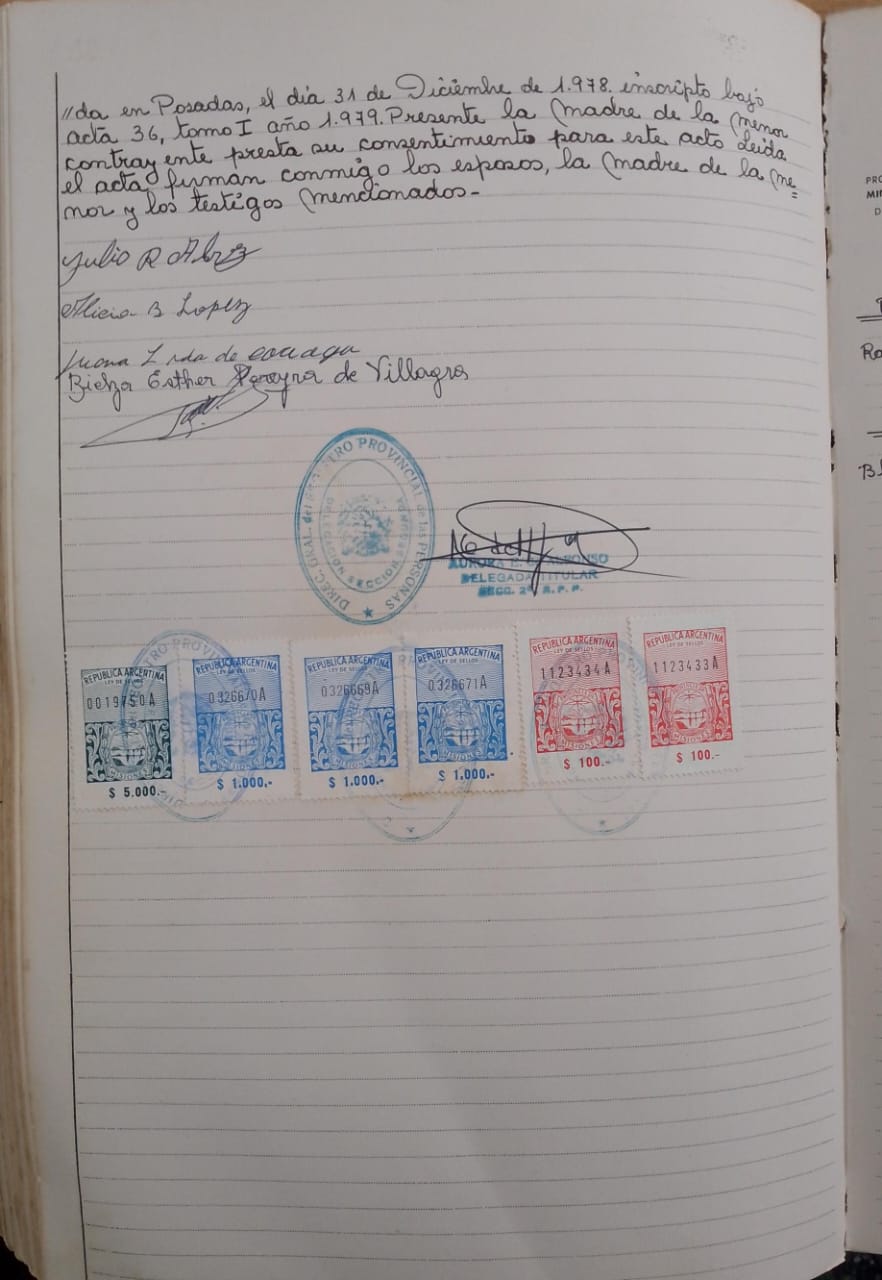 //da en Posadas, el día 31 de Diciembre de 1.978. inscripto bajo
acta 36, tomo I año 1.979. Presente la Madre de la Menor
contrayente presta su consentimiento para este acto Leida
el acta firman conmigo los esposos, la Madre de la Me=
nor y los testigos Mencionados-
Julio R
Alicia B Lopez
Juana de
Esther Pereyra de Villagra
DIREC. GRAL. del REGISTRO PROVINCIAL de las PERSONAS
SECCION
AURORA E.
DELEGADA TITULAR
SECC. 2ª R. P. P.
REPUBLICA ARGENTINA
LEY DE SELLOS
0019750A
MISIONES
$ 5.000.-
REPUBLICA ARGENTINA
LEY DE SELLOS
0326670A
MISIONES
$ 1.000.-
REPUBLICA ARGENTINA
LEY DE SELLOS
0326669A
MISIONES
$ 1.000.-
REPUBLICA ARGENTINA
LEY DE SELLOS
0326671A
MISIONES
$ 1.000.-
REPUBLICA ARGENTINA
LEY DE SELLOS
1123434A
MISIONES
$ 100.-
REPUBLICA ARGENTINA
LEY DE SELLOS
1123433A
MISIONES
$ 100.-